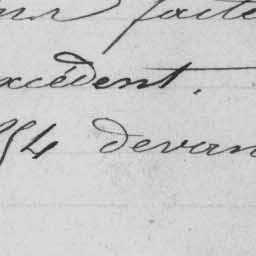 faite
xcédent.
54 devan